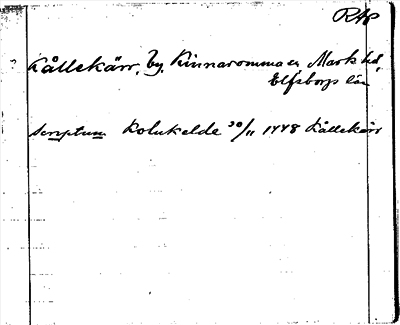 RAP
Kållekärr, by, Kinnaromma sn Marks hd,
Elfsborgs län
scriptum Kolukelde 30/11 1448 Kållekärr